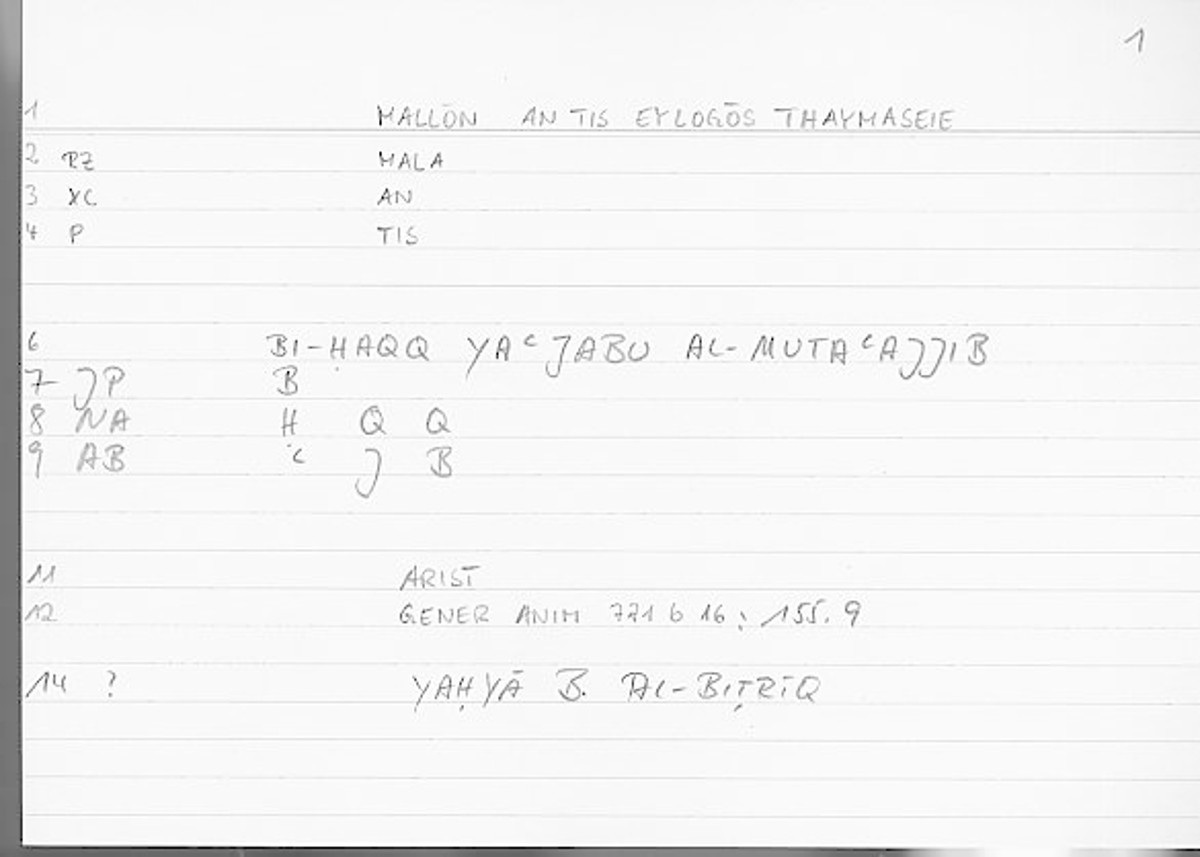 1
1 MALLŌN AN TIS EYLOGŌS THAYMASEIE
2 RZ MALA
3 XC AN
4 P TIS
6 BI-ḤAQQ YAʿJABU AL-MUTAʿAJJIB
7 JP B
8 NA Ḥ Q Q
9 AB ʿ J B
11 ARIST
12 GENER ANIM 771 b 16 ; 155.9
14 ? YAḤYĀ B. AL-BIṬRĪQ